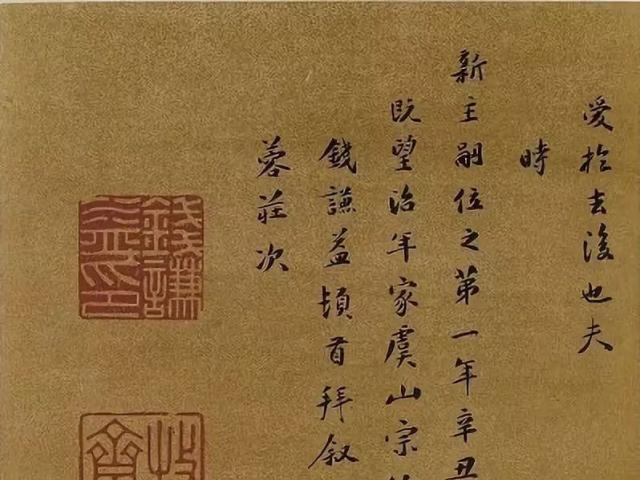 愛於去後也夫
時
新主嗣位之第一年辛丑
既望治年家虞山宗
錢謙益頓首拜叙
蓉莊次
錢謙益印
牧齋